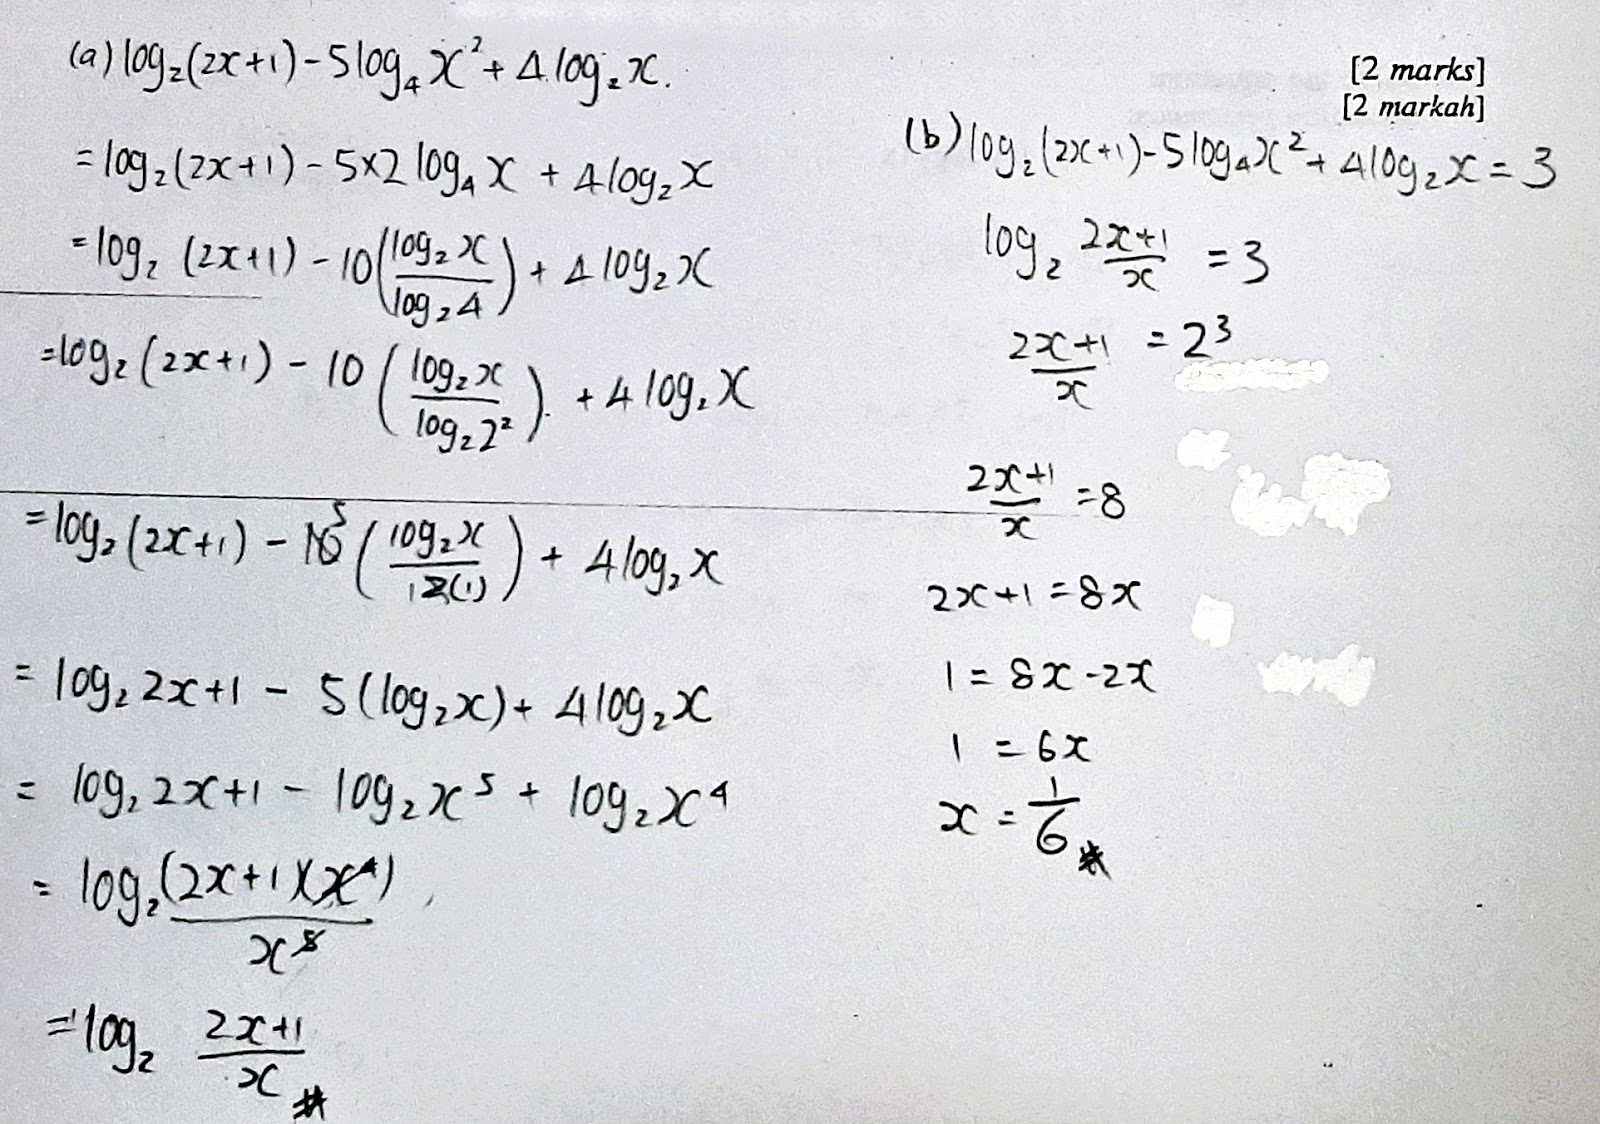 (a) log₂(2x+1) - 5log₄x² + 4log₂x.
= log₂(2x+1) - 5×2 log₄x + 4log₂x
= log₂(2x+1) - 10(log₂x / log₂4) + 4log₂x
= log₂(2x+1) - 10(log₂x / log₂2²) + 4log₂x
= log₂(2x+1) - 10 5(log₂x / 1 2(1)) + 4log₂x
= log₂2x+1 - 5(log₂x) + 4log₂x
= log₂2x+1 - log₂x⁵ + log₂x⁴
= log₂(2x+1)(x⁴) / x⁵
= log₂ 2x+1 / x #
[2 marks]
[2 markah]
(b) log₂(2x+1) - 5log₄x² + 4log₂x = 3
log₂ 2x+1 / x = 3
2x+1 / x = 2³
2x+1 / x = 8
2x+1 = 8x
1 = 8x - 2x
1 = 6x
x = 1/6 #